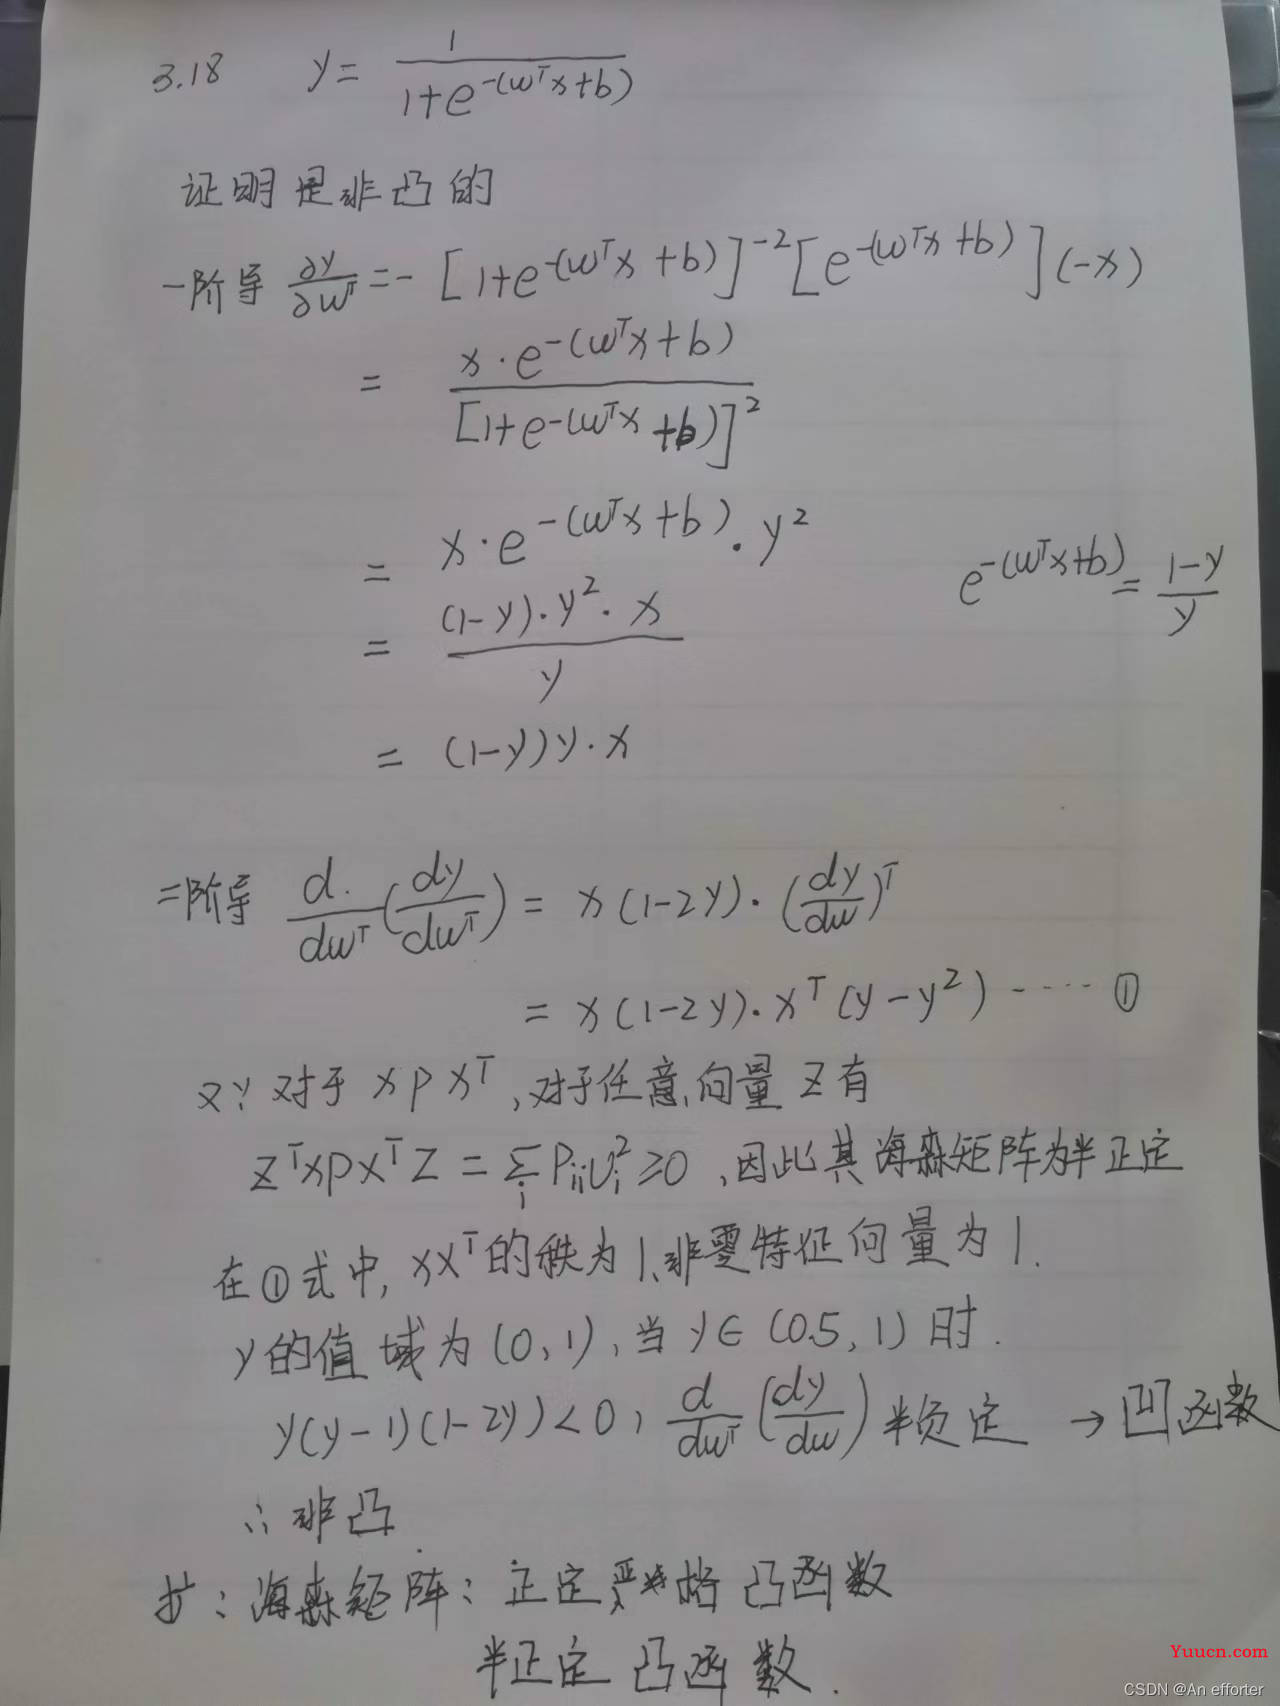 3.18 y = 1 / (1+e^-(w^T x+b))
证明是非凸的
一阶导 ∂y/∂w^T = - [1+e^-(w^T x+b)]^-2 [e^-(w^T x+b)] (-x)
= x·e^-(w^T x+b) / [1+e^-(w^T x+b)]^2
= x·e^-(w^T x+b)·y^2 e^-(w^T x+b) = (1-y)/y
= (1-y)·y^2·x / y
= (1-y)y·x
二阶导 d/dw^T (dy/dw^T) = x(1-2y)·(dy/dw)^T
= x(1-2y)·x^T(y-y^2) ····· ①
又∵对于 xpx^T,对于任意向量 z有
z^T xpx^T z = Σ_i P_ii υ_i^2 ≥0 ,因此其海森矩阵为半正定
在①式中, xx^T的秩为1、非零特征向量为1.
y的值域为(0,1),当 y∈(0.5,1)时.
y(y-1)(1-2y)<0, d/dw^T (dy/dw) 半负定 → 凹函数
∴非凸.
扩:海森矩阵:正定 严格 凸函数
半正定 凸函数.
Yuucn.com
CSDN @An efforter